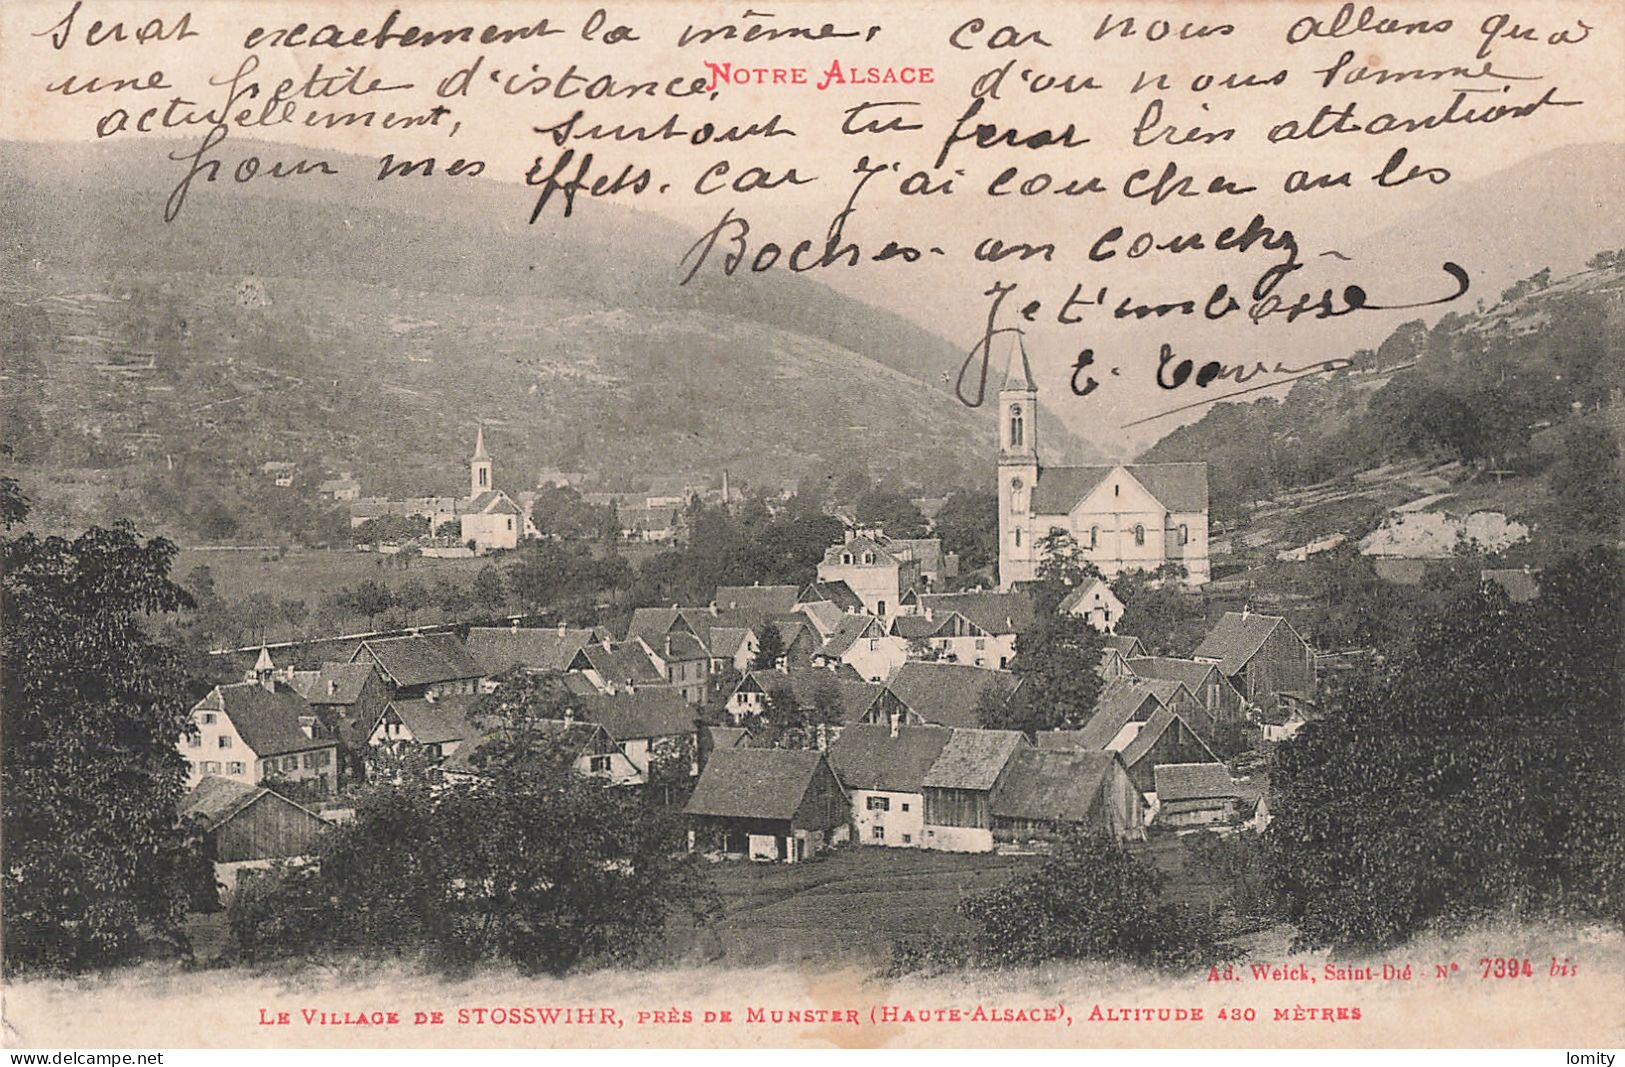 serat exactement la même, car nous allons qu'a
une petite d'istance, d'ou nous somme
NOTRE ALSACE
actuellement, surtout tu feras bien attantiont
pour mes effets. car J'ai coucher au les
Boches - an couchy -
Je t'embasse
E.
Ad. Weick, Saint-Dié - N° 7394 bis
LE VILLAGE DE STOSSWIHR, PRÈS DE MUNSTER (HAUTE-ALSACE), ALTITUDE 430 MÈTRES
delcampe.net
lomity